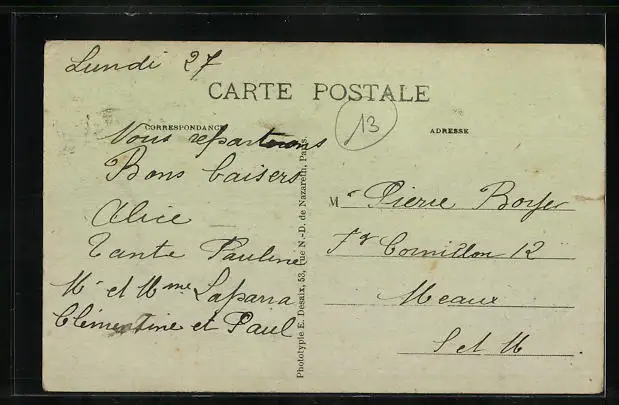 Lundi 27
CARTE POSTALE
13
CORRESPONDANCE
ADRESSE
Nous repartirons
Bons baisers
Alice
Tante Pauline
Mr et Mme Laparra
Clémentine et Paul
Phototypie E. Desaix, 53, rue N.-D. de Nazareth, Paris.
Mr Pierre Boyer
Fg Cornillon 12
Meaux
S et M